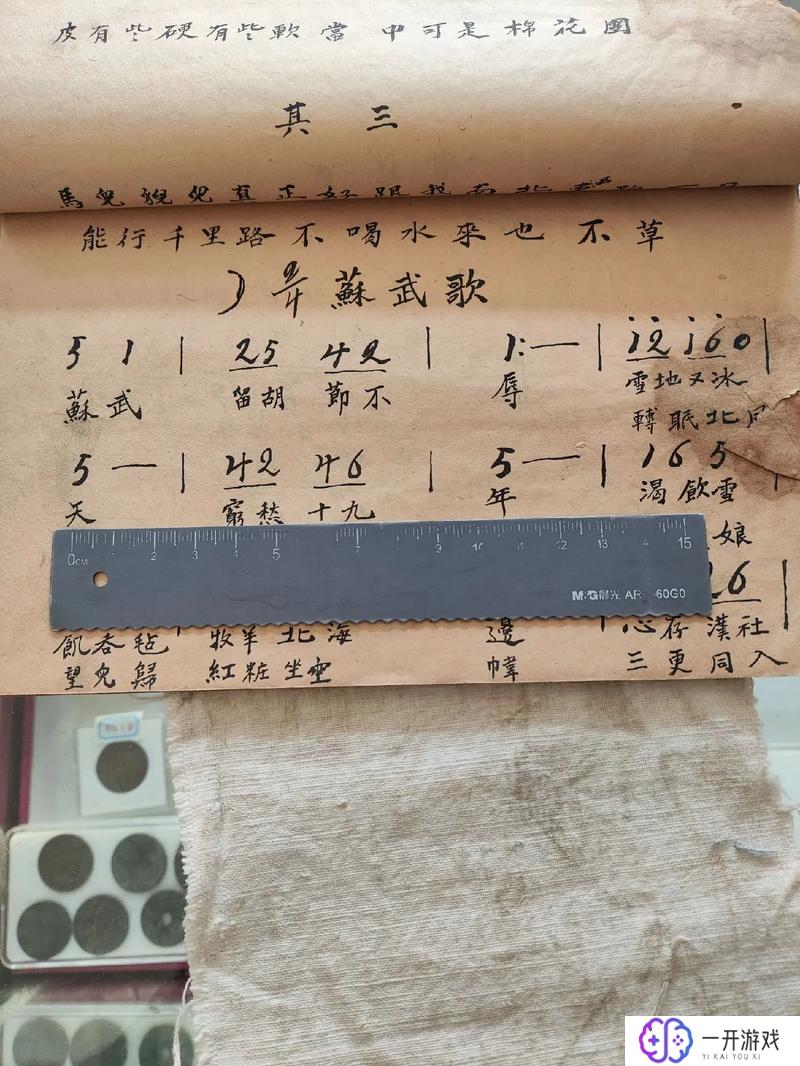 皮有些硬有些軟當 中可是棉花團
其 三
馬兒 兒真正好跟我
能行千里路不喝水來也不草
) 2/4 蘇武歌
5 1 | 25 42 | 1·— | i2 i60 |
蘇武 留胡 節不 辱 雪地又冰
轉眠北
5 — | 42 46 | 5 — | 1 6 5
天 窮愁 十九 年 渴飲雪
娘
0CM 2 3 4 5 7 9 10 11 12 13 4 15
M&G 晨光 AR 60G0
26
飢吞毡 牧羊北海 邊 心存漢社
望兒歸 紅粧坐空 幃 三更同入
一开游戏
YI KAI YOU XI